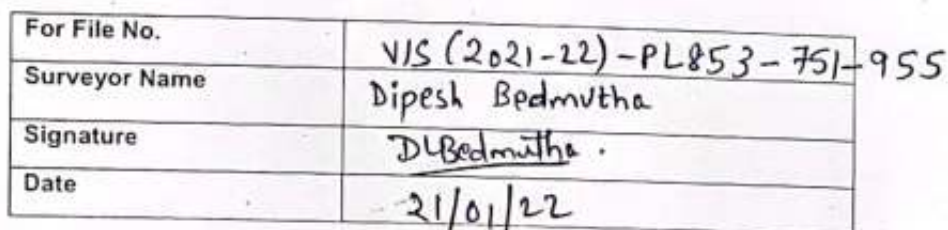 For File No. VIS (2021-22) - PL853 - 751-955
Surveyor Name Dipesh Bedmutha
Signature DLBedmutha.
Date 21/01/22